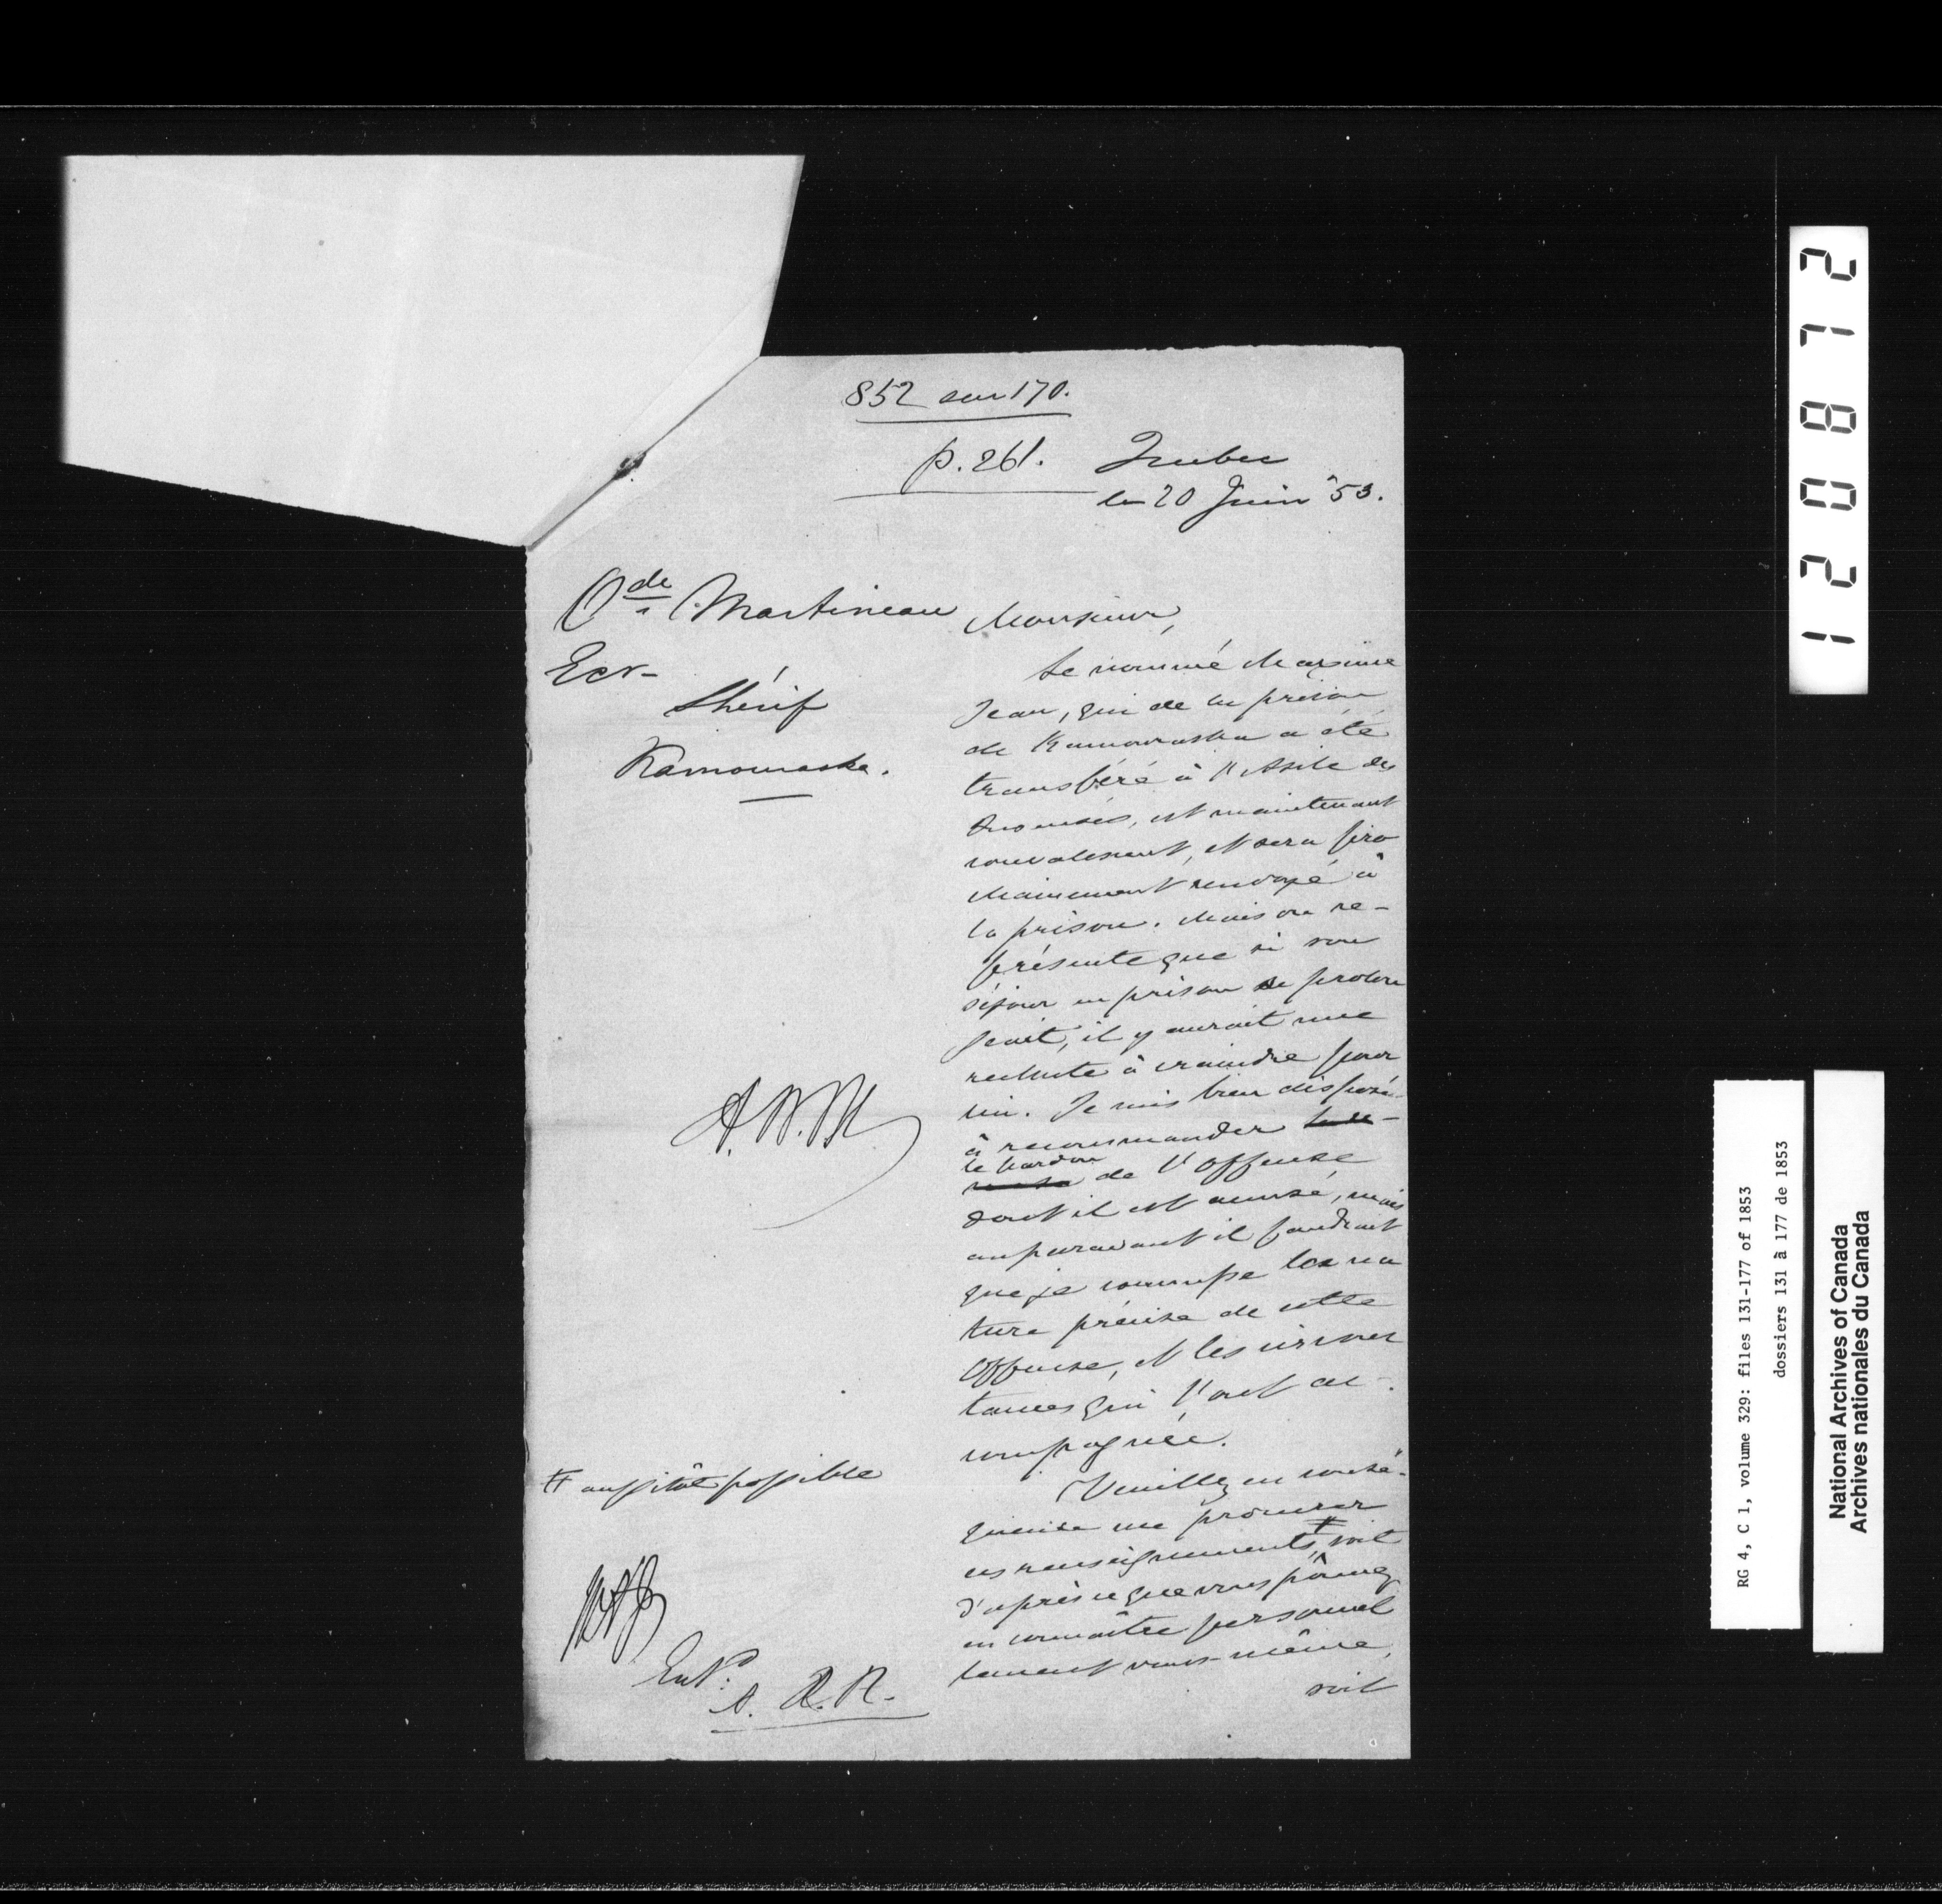 852 sur 170.
p. 261.
Quebec
le 20 Juin '53.
Ode Martineau
Ecr-
Shérif
Kamouraska.
Monsieur,
Le nommé Maxime
Jean, qui de la prison
de Kamouraska a été
transféré à l'Asile des
Insensés, est maintenant
convalescent, et sera pro
chainement renvoyé à
la prison. Mais on re-
présente que si son
séjour en prison se prolon
geait, il y aurait une
rechute à craindre pour
lui. Je suis bien disposé
à recommander
le pardon
de l'offense
dont il est accusé, mais
auparavant il faudrait
que je connusse la na
ture précise de cette
offense, et les circons
tances qui l'ont ac-
compagnée.
Veuillez en consé-
quence me procurer
ces renseignements ‡, soit
d'après ce que vous pouvez
en connaître personnel
lement vous-même,
soit
A.N.M
‡ aussitôt possible
Entd.
A. R. R.
1 2 0 8 7 2
RG 4, C 1, volume 329: files 131-177 of 1853
dossiers 131 à 177 de 1853
National Archives of Canada
Archives nationales du Canada